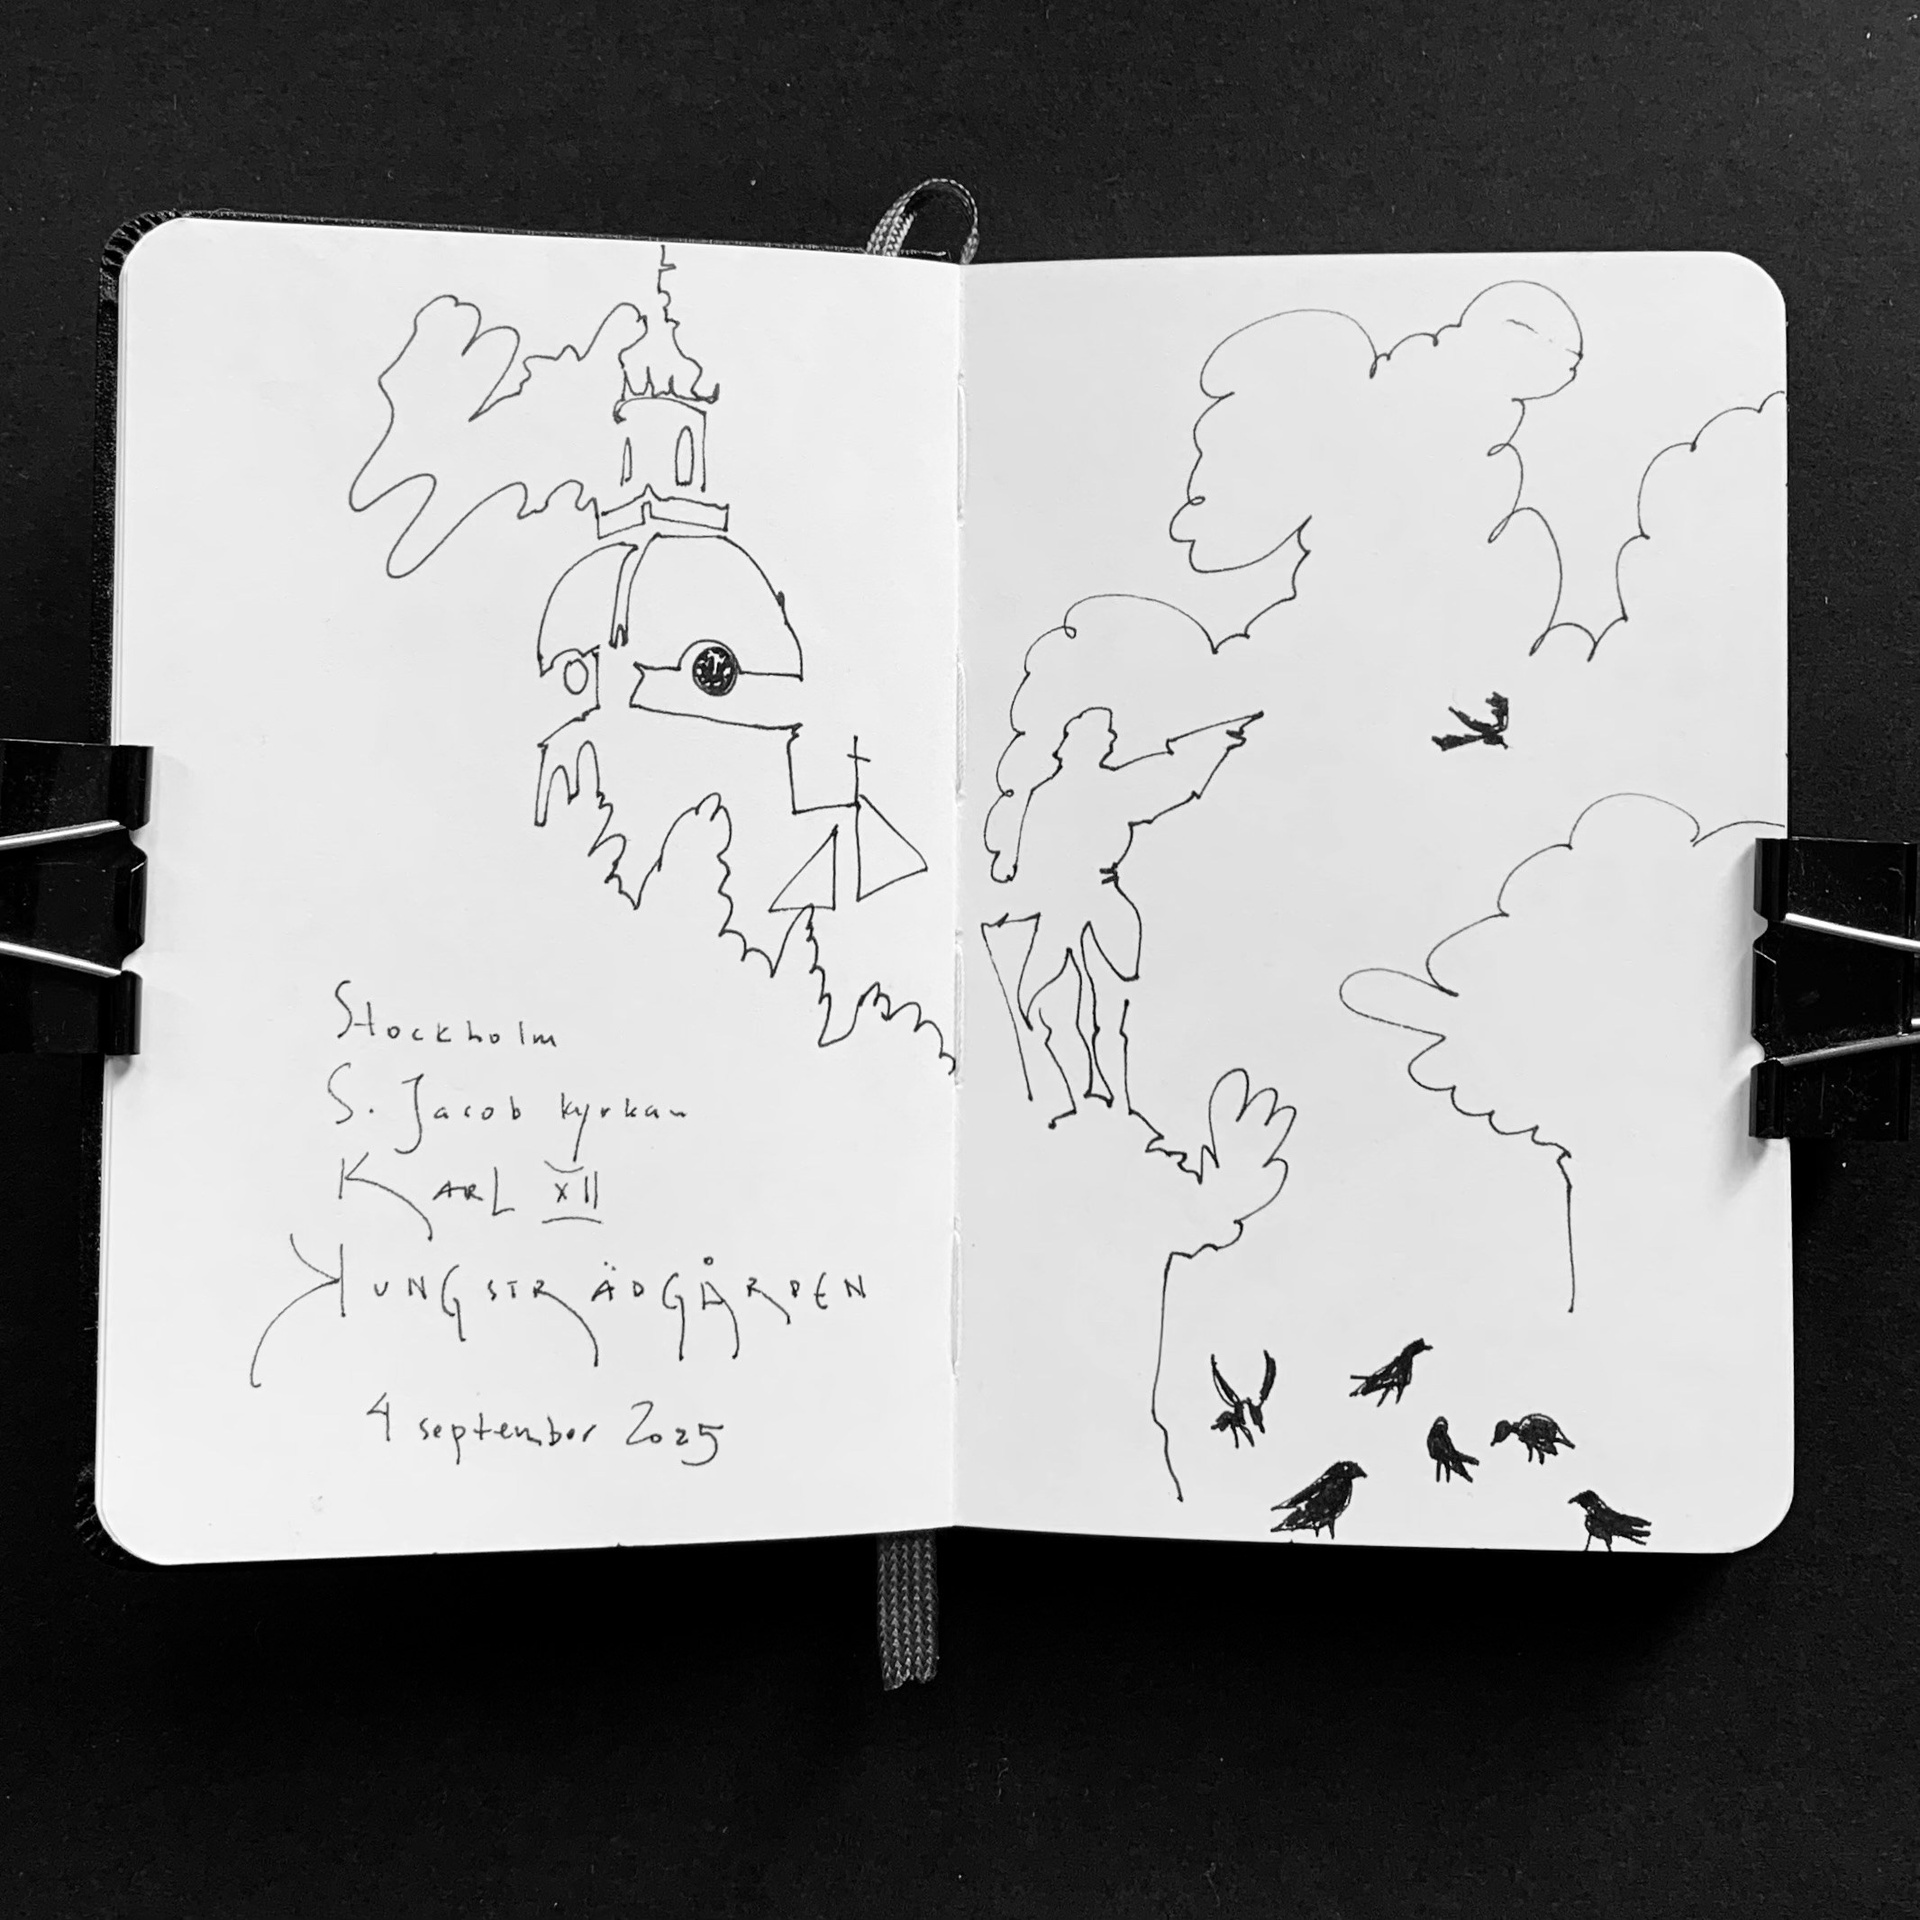 Stockholm
S. Jacob kyrkan
KARL XII
KUNGSTRÄDGÅRDEN
4 september 2025